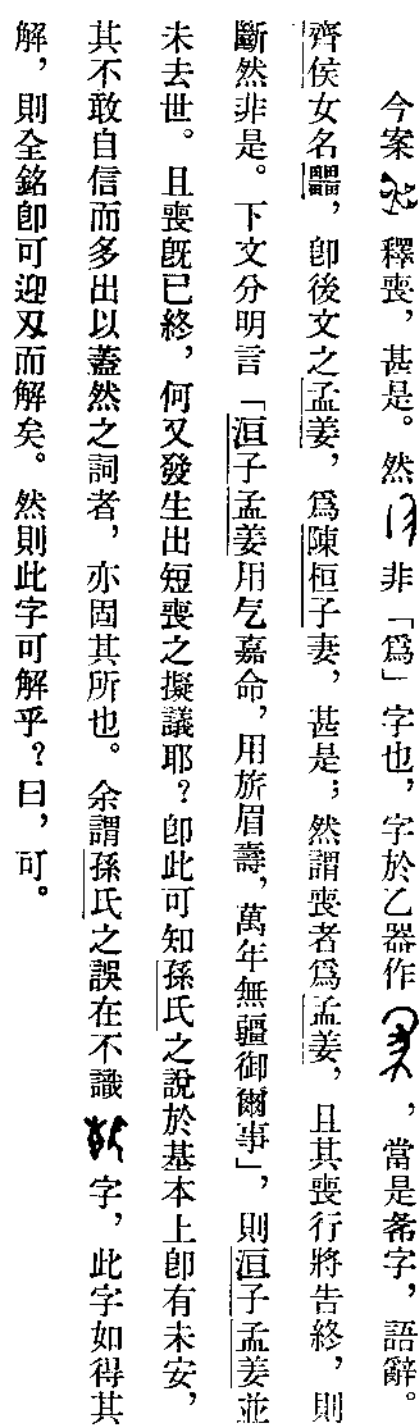 今案釋喪，甚是。然非「爲」字也，字於乙器作，當是字，語辭。
齊侯女名，卽後文之孟姜，爲陳桓子妻，甚是；然謂喪者爲孟姜，且其喪行將告終，則
斷然非是。下文分明言「洹子孟姜用乞嘉命，用旂眉壽，萬年無疆御爾事」，則洹子孟姜並
未去世。且喪旣已終，何又發生出短喪之擬議耶？卽此可知孫氏之說於基本上卽有未安，
其不敢自信而多出以蓋然之詞者，亦固其所也。余謂孫氏之誤在不識字，此字如得其
解，則全銘卽可迎刃而解矣。然則此字可解乎？曰，可。